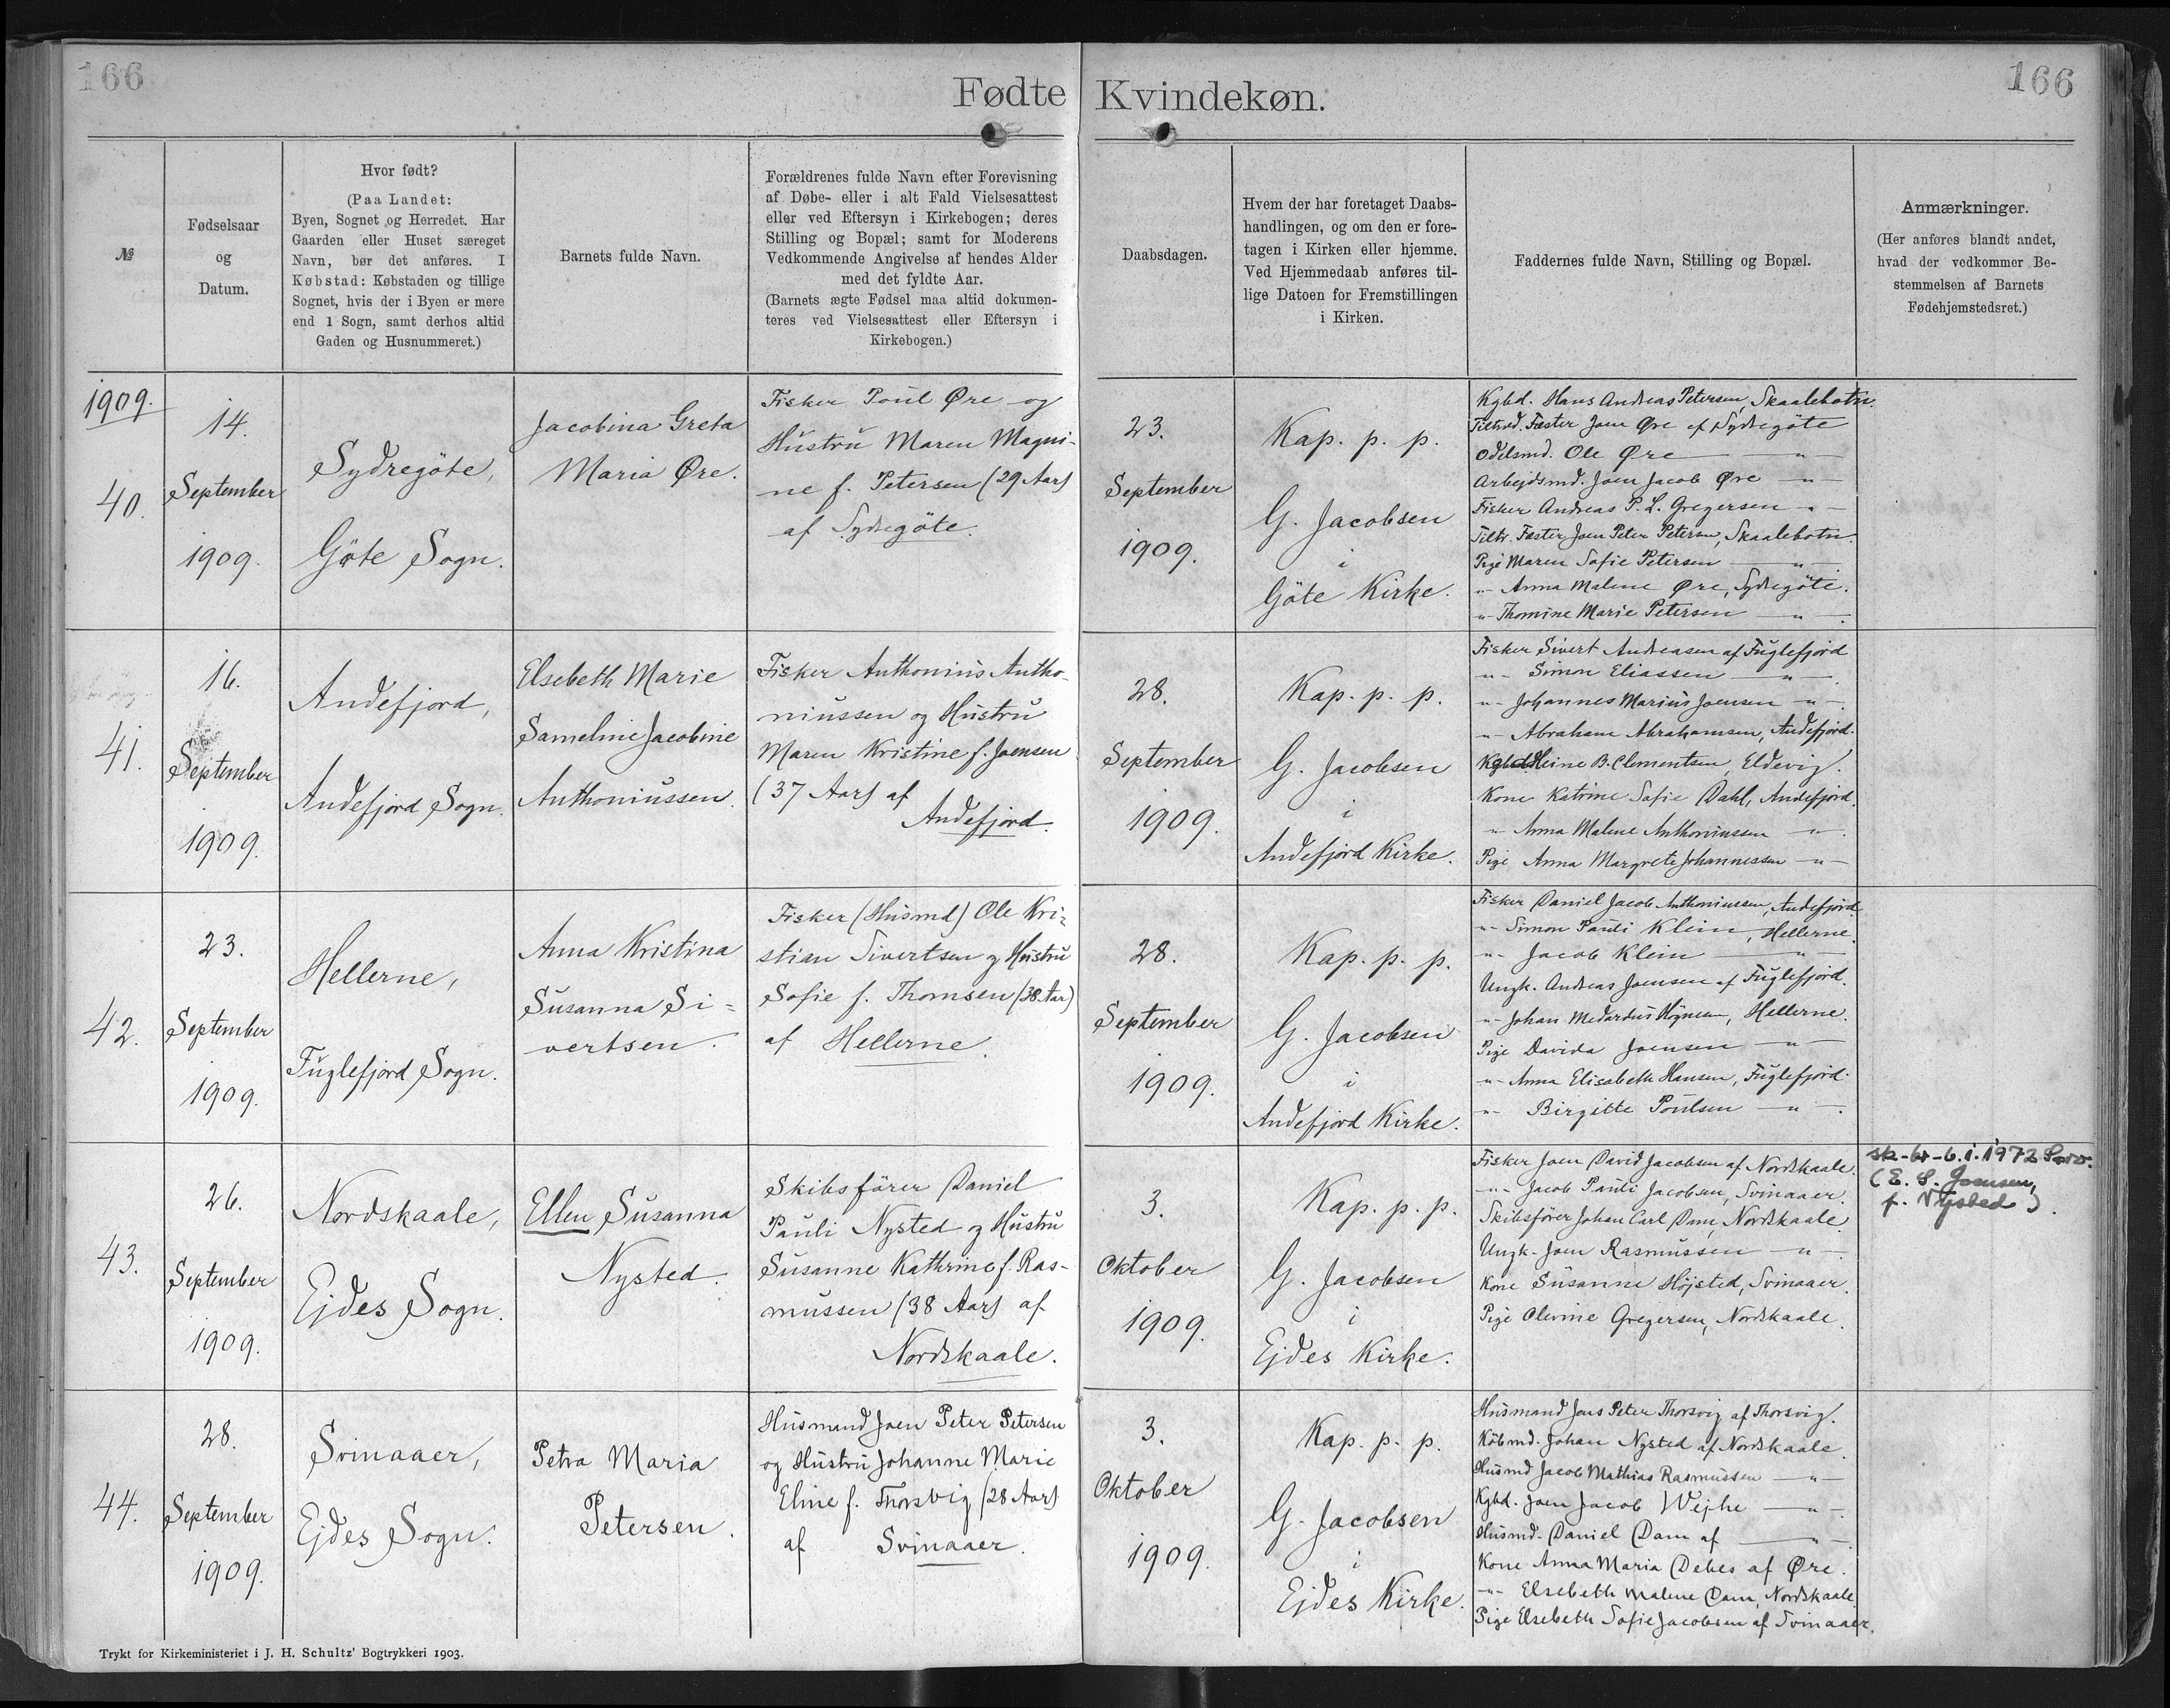 166
166
Fødte
Kvindekøn.
№
Fødselsaar
og
Datum.
Hvor født?
(Paa Landet:
Byen, Sognet og Herredet. Har
Gaarden eller Huset særeget
Navn, bør det anføres. I
Købstad: Købstaden og tillige
Sognet, hvis der i Byen er mere
end 1 Sogn, samt derhos altid
Gaden og Husnummeret.)
Barnets fulde Navn.
Forældrenes fulde Navn efter Forevisning
af Døbe- eller i alt Fald Vielsesattest
eller ved Eftersyn i Kirkebogen; deres
Stilling og Bopæl; samt for Moderens
Vedkommende Angivelse af hendes Alder
med det fyldte Aar.
(Barnets ægte Fødsel maa altid dokumen-
teres ved Vielsesattest eller Eftersyn i
Kirkebogen.)
Daabsdagen.
Hvem der har foretaget Daabs-
handlingen, og om den er fore-
tagen i Kirken eller hjemme.
Ved Hjemmedaab anføres til-
lige Datoen for Fremstillingen
i Kirken.
Faddernes fulde Navn, Stilling og Bopæl.
Anmærkninger.
(Her anføres blandt andet,
hvad der vedkommer Be-
stemmelsen af Barnets
Fødehjemstedsret.)
1909.
40.
14.
September
1909.
Sydregöte,
Göte Sogn.
Jacobina Greta
Maria Øre.
Fisker Poul Øre og
Hustru Maren Magni-
ne f. Petersen (29 Aar)
af Sydregöte.
23.
September
1909.
Kap. p. p.
G. Jacobsen
i
Göte Kirke.
Kgbd. Hans Andreas Petersen, Skaalebotn.
Fæster Joen Øre af Sydregöte
Odelsmd. Ole Øre — " —
Arbejdsmd. Joen Jacob Øre — " —
Fisker Andreas P. L. Gregersen — " —
Fæster Joen Peter Petersen, Skaalebotn.
Pige Maren Sofie Petersen — " —.
- " - Anna Malene Øre, Sydregöte.
- " - Thomine Marie Petersen — " —.
41.
16.
September
1909.
Andefjord,
Andefjord Sogn.
Elsebeth Marie
Sameline Jacobine
Anthoniussen.
Fisker Anthonius Antho-
niussen og Hustru
Maren Kristine f. Joensen
(37 Aar) af
Andefjord.
28.
September
1909.
Kap. p. p.
G. Jacobsen
i
Andefjord Kirke.
Fisker Sivert Andreasen af Fuglefjord
- " - Simon Eliassen — " —.
- " - Johannes Marius Joensen - " -.
- " - Abraham Abrahamsen, Andefjord.
Kgbd Heine B. Clementsen, Eldevig.
Kone Katrine Sofie Dahl, Andefjord.
- " - Anna Malene Anthoniussen — " —.
Pige Anna Margrete Johannessen — " —
42.
23.
September
1909.
Hellerne,
Fuglefjord Sogn.
Anna Kristina
Susanna Si-
vertsen.
Fisker (Husmd) Ole Kri-
stian Sivertsen og Hustru
Sofie f. Thomsen (38 Aar)
af Hellerne.
28.
September
1909.
Kap. p. p.
G. Jacobsen
i
Andefjord Kirke.
Fisker Daniel Jacob Anthoniussen, Andefjord
- " - Simon Pauli Klein, Hellerne.
- " - Jacob Klein — " —
Ungk. Andreas Joensen af Fuglefjord.
- " - Johan Medardus Högnesen, Hellerne.
Pige Davida Joensen — " —
- " - Anna Elisabeth Hansen, Fuglefjord.
- " - Birgitte Poulsen — " —.
43.
26.
September
1909.
Nordskaale,
Ejdes Sogn.
Ellen Susanna
Nysted.
Skibsfører Daniel
Pauli Nysted og Hustru
Susanne Kathrine f. Ras-
mussen (38 Aar) af
Nordskaale.
3.
Oktober
1909.
Kap. p. p.
G. Jacobsen
i
Ejdes Kirke.
Fisker Joen David Jacobsen af Nordskaale.
- " - Jacob Pauli Jacobsen, Svinaaer.
Skibsfører Johan Carl Dam, Nordskaale.
Ungk. Joen Rasmussen — " —.
Kone Susanne Højsted, Svinaaer.
Pige Olevine Gregersen, Nordskaale.
sk-br-6.1.1972
(E. S. Joensen,
f. Nysted).
44.
28.
September
1909.
Svinaaer,
Ejdes Sogn.
Petra Maria
Petersen.
Husmand Joen Peter Petersen
og Hustru Johanne Marie
Eline f. Thorsvig (28 Aar)
af Svinaaer.
3.
Oktober
1909.
Kap. p. p.
G. Jacobsen
i
Ejdes Kirke.
Husmand Jens Peter Thorsvig af Thorsvig.
Købmd. Johan Nysted af Nordskaale.
Husmd Jacob Mathias Rasmussen — " —
Kgbd. Joen Jacob Wejhe — " —.
Husmd. Daniel Dam af — " —.
Kone Anna Maria Debes af Øre.
- " - Elsebeth Malene Dam, Nordskaale.
Pige Elsebeth Sofie Jacobsen af Svinaaer.
Trykt for Kirkeministeriet i J. H. Schultz' Bogtrykkeri 1903.